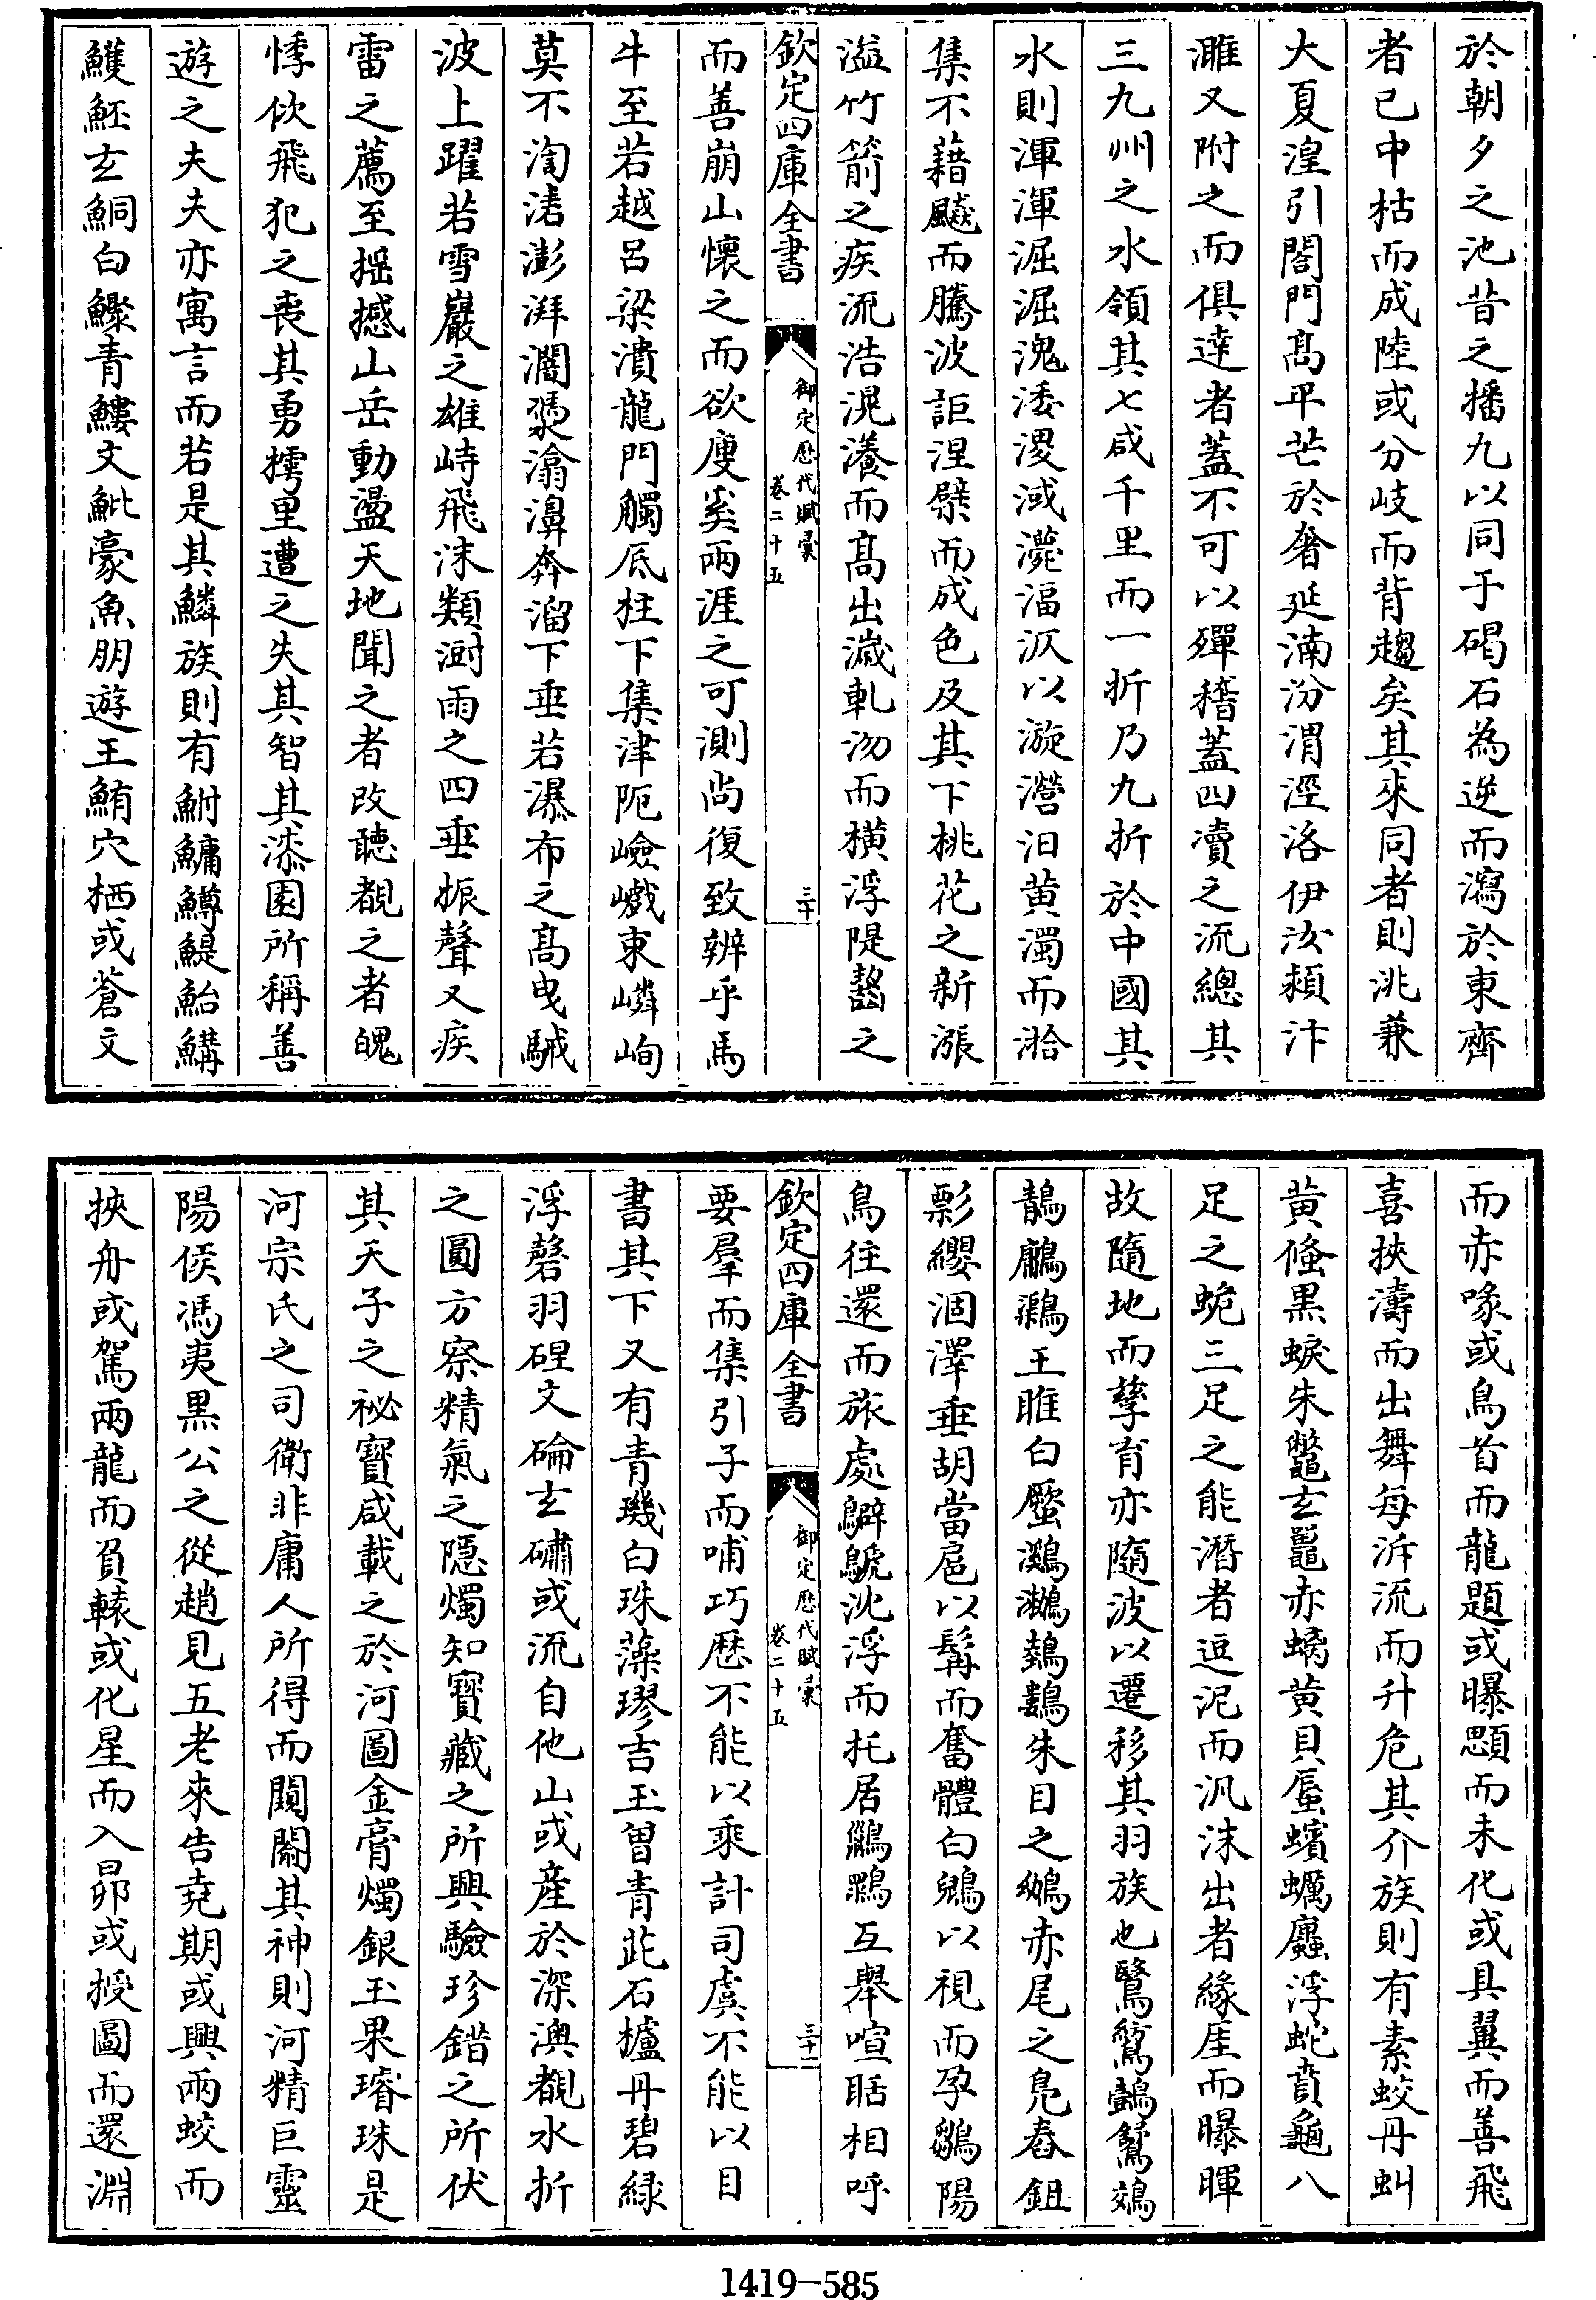 於朝夕之池昔之播九以同于碣石為逆而瀉於東齊
者已中枯而成陸或分岐而背趨矣其來同者則洮兼
大夏湟引閤門髙平芒於奢延湳汾渭涇洛伊汝潁汴
濉又附之而俱達者蓋不可以殫稽蓋四瀆之流總其
三九州之水領其七咸千里而一折乃九折於中國其
水則渾渾淈淈溾涹㴊淢灋湢汳以漩濙汩黄濁而湁
集不藉飈而騰波詎涅檗而成色及其下桃花之新漲
溢竹箭之疾流浩滉瀁而髙出濊軋沕而横浮隄齾之
欽定四庫全書
御定歷代賦彙
卷二十五
三十
而善崩山懷之而欲廋奚兩涯之可測尚復致辨乎馬
牛至若越呂梁潰龍門觸底柱下集津阨嶮巇束嶙峋
莫不渹湱澎湃濶㶟滃濞奔溜下垂若瀑布之髙曳駴
波上躍若雪巖之雄峙飛沫類澍雨之四垂振聲又疾
雷之薦至摇撼山岳動盪天地聞之者改聽覩之者魄
悸佽飛犯之喪其勇樗里遭之失其智其漆園所稱善
遊之夫夫亦寓言而若是其鱗族則有鮒鱅鱒鯷鮐鰝
鱯魾玄鮦白鰶青鰱文魮豪魚朋遊王鮪穴栖或蒼文
而赤喙或鳥首而龍題或曝顋而未化或具翼而善飛
喜挾濤而出舞每泝流而升危其介族則有素蛟丹虯
黄䖺黒蜧朱鼈玄鼉赤蟕黄貝蜃蠙蠣蠯浮蛇賁龜八
足之蛫三足之能潛者逗泥而汎沫出者緣厓而曝暉
故隨地而孳育亦隨波以遷移其羽族也鷖鴛鷫鷟鵁
鶄鸕鸂王雎白鷢鸂鷘鶄鸛朱目之鸍赤尾之鳧舂鉏
髟纓涸澤垂胡當扈以髯而奮體白鶂以視而孕鶵陽
鳥往還而旅處鸊鷈沈浮而托居鷀鸅互舉喧聒相呼
欽定四庫全書
御定歷代賦彙
卷二十五
三十一
要羣而集引子而哺巧歴不能以乘計司虞不能以目
書其下又有青璣白珠藻璆吉玉曽青茈石櫨丹碧緑
浮磬羽碮文碖玄䃤或流自他山或産於深澳覩水折
之圓方察精氣之隠燭知寳藏之所興驗珍錯之所伏
其天子之祕寳咸載之於河圖金膏燭銀玉果璿珠是
河宗氏之司衛非庸人所得而闚闞其神則河精巨靈
陽侯馮夷黒公之從趙見五老來告堯期或興兩蛟而
挾舟或駕兩龍而負轅或化星而入昴或授圖而還淵
1419-585